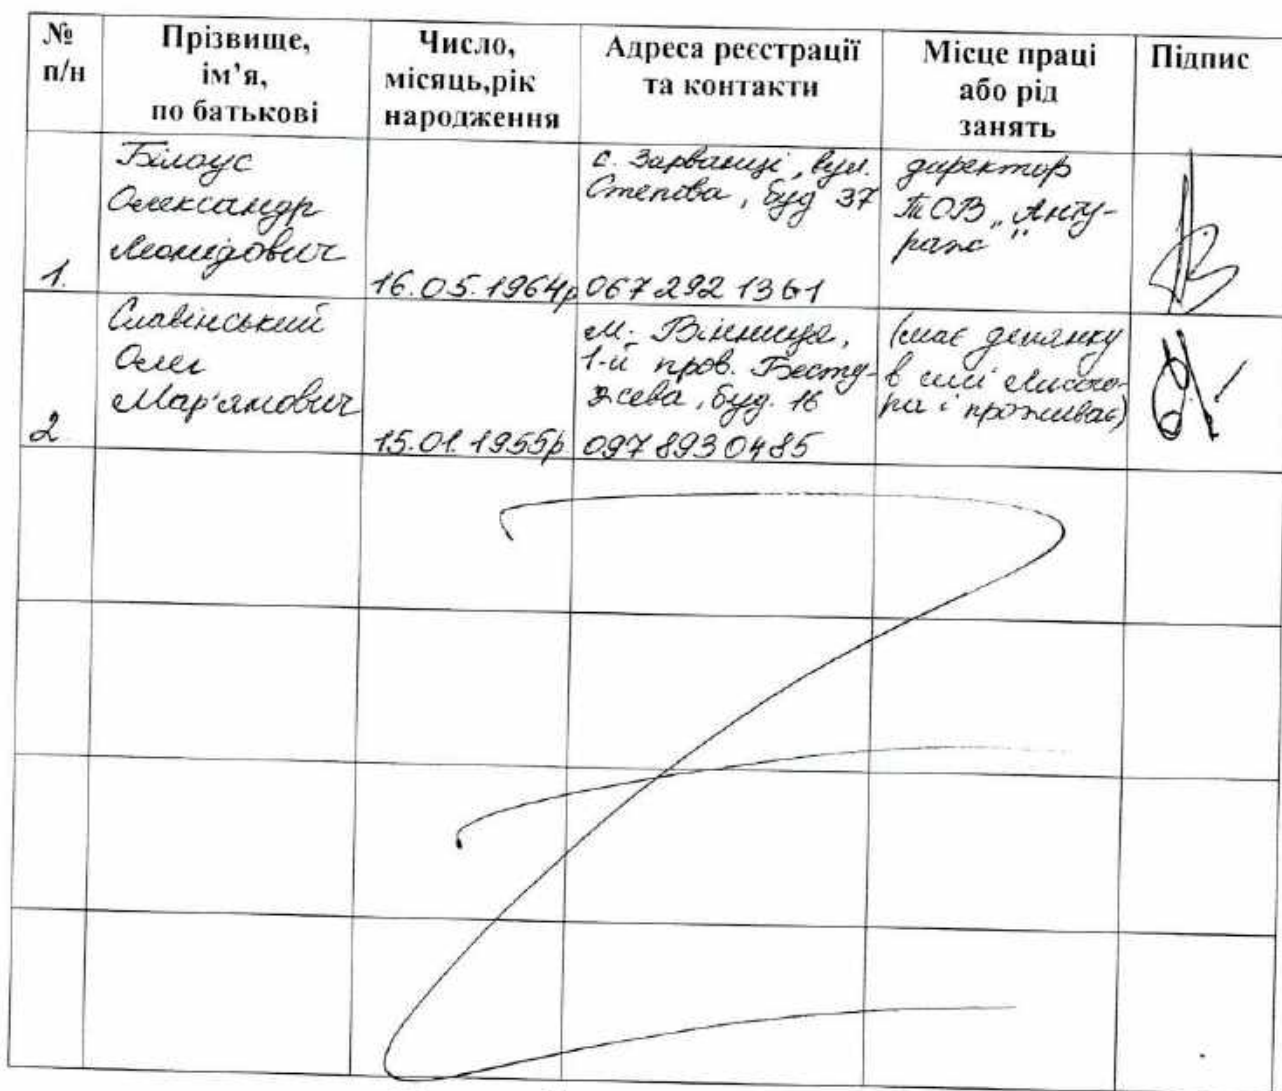 № п/н
Прізвище, ім’я, по батькові
Число, місяць,рік народження
Адреса реєстрації та контакти
Місце праці або рід занять
Підпис
1.
Білоус
Олександр
Леонідович
16.05.1964р
с. Зарванці, вул.
Степова, буд 37
067 292 13 61
директор
ТОВ „Анту-
раж"
2
Славінський
Олег
Мар'янович
15.01.1955р
м. Вінниця,
1-й пров. Бесту-
жева, буд. 16
097 893 0485
(має ділянку
в селі Лисого-
ра і проживає)